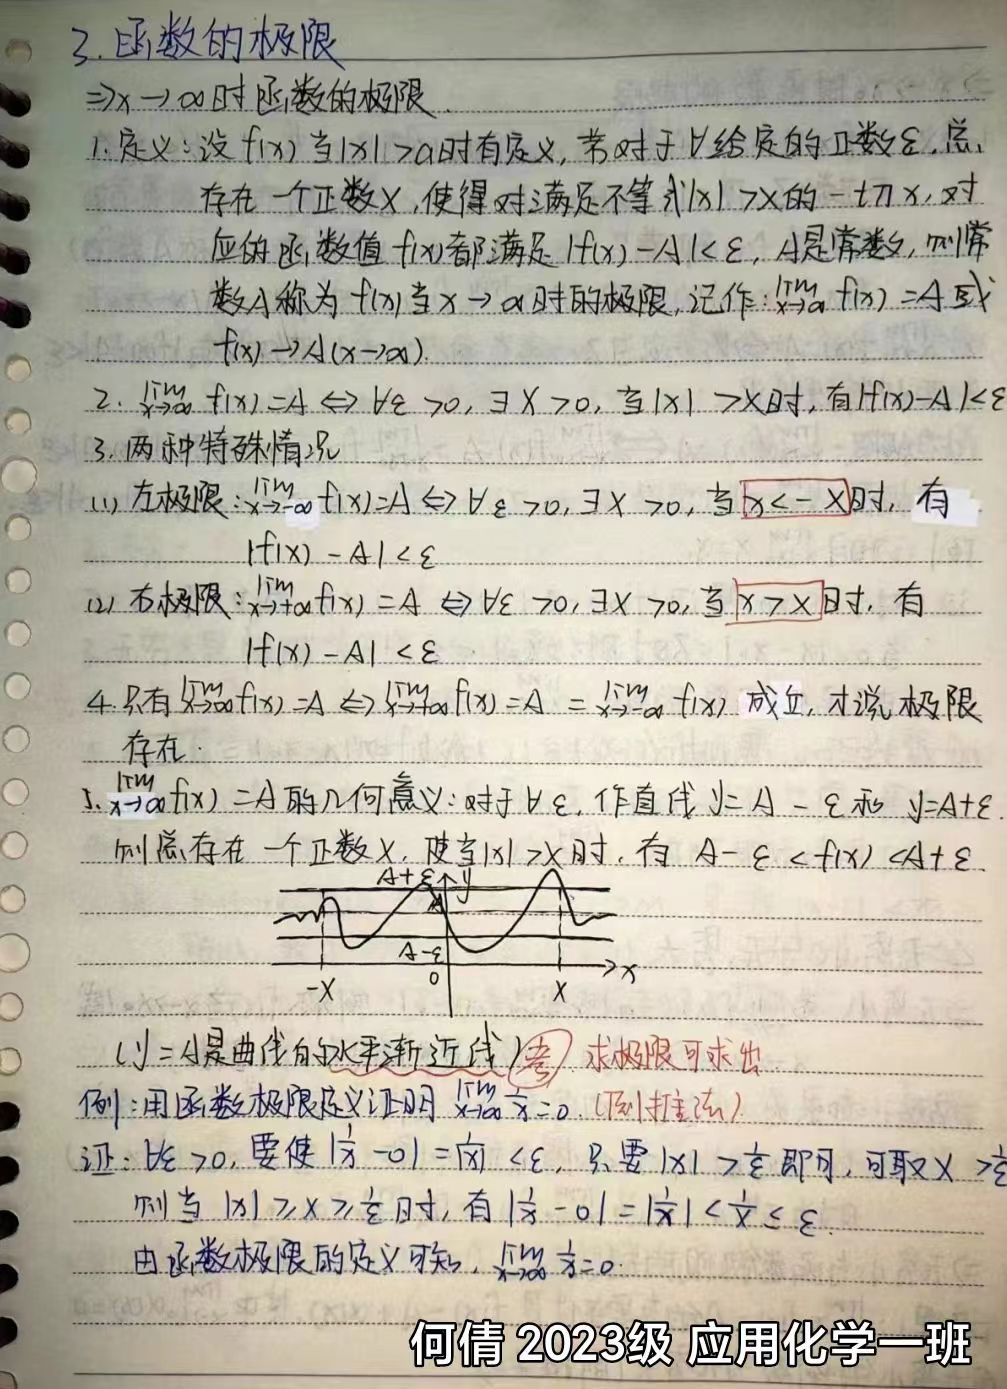 3.函数的极限
⇒x→∞时函数的极限.
1.定义:设f(x)当|x|>a时有定义,若对于∀给定的正数ε,总
存在一个正数X,使得对满足不等式|x|>X的一切x,对
应的函数值f(x)都满足|f(x)-A|<ε,A是常数,则常
数A称为f(x)当x→∞时的极限,记作:lim x→∞ f(x)=A或
f(x)→A(x→∞).
2. lim x→∞ f(x)=A⇔∀ε>0,∃X>0,当|x|>X时,有|f(x)-A|<ε
3.两种特殊情况
(1)左极限:lim x→-∞ f(x)=A⇔∀ε>0,∃X>0,当x<-X时,有
|f(x)-A|<ε
(2)右极限:lim x→+∞ f(x)=A⇔∀ε>0,∃X>0,当x>X时,有
|f(x)-A|<ε
4.只有lim x→∞ f(x)=A⇔lim x→+∞ f(x)=A=lim x→-∞ f(x)成立,才说极限
存在.
5. lim x→∞ f(x)=A的几何意义:对于∀ε,作直线y=A-ε和y=A+ε.
则总存在一个正数X,使当|x|>X时,有A-ε<f(x)<A+ε.
A+ε y
A
A-ε
0 x
-X X
(y=A是曲线的水平渐近线)考 求极限可求出
例:用函数极限定义证明 lim x→∞ 1/x=0.(倒推法)
证:∀ε>0,要使|1/x-0|=1/|x|<ε,只要|x|>1/ε即可,可取X>1/ε
则当|x|≥X≥1/ε时,有|1/x-0|=|1/x|<1/X≤ε.
由函数极限的定义可知,lim x→∞ 1/x=0.
何倩 2023级 应用化学一班